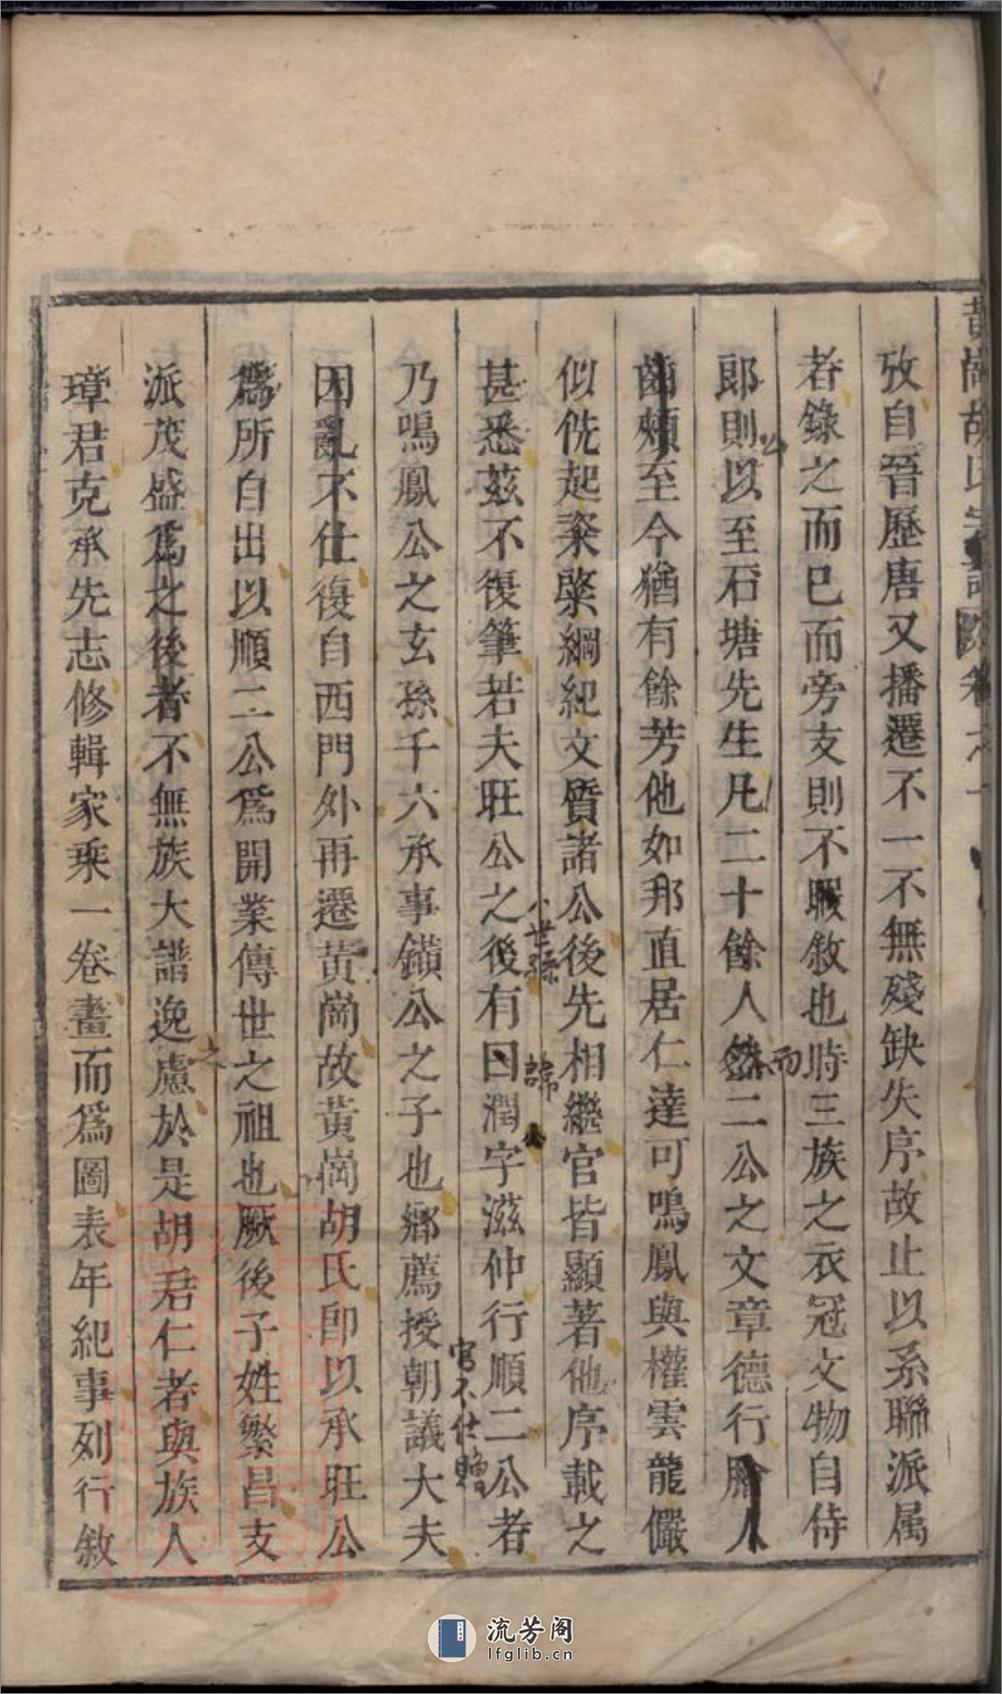 黃崗胡氏宗譜 卷之一
攷自晉歷唐又播遷不一不無殘缺失序故止以系聯派属
者錄之而已而旁支則不暇敘也時三族之衣冠文物自侍
郎則以至石塘先生凡二十餘人然二公之文章德行膾人
公
而
齒頰至今猶有餘芳他如邦直居仁達可鳴鳳與權雲龍儼
似侁起寀棨綱紀文質諸公後先相繼官皆顯著他序載之
八世孫
諱
公
甚悉茲不復筆若夫旺公之後有曰潤字滋仲行順二公者
官不仕贈
乃鳴鳳公之玄孫千六承事鐄公之子也鄉薦授朝議大夫
因亂不仕復自西門外再遷黃崗故黃崗胡氏卽以承旺公
爲所自出以順二公爲開業傳世之祖也厥後子姓繁昌支
之
派茂盛爲之後者不無族大譜逸慮於是胡君仁者與族人
璋君克承先志修輯家乘一卷畫而爲圖表年紀事列行敘
流芳阁
lfglib.cn